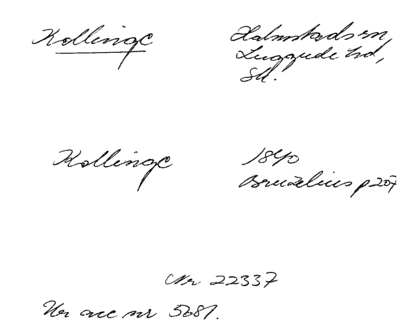 Kollinge Halmstads sn,
Luggude hd,
Sk.
Kollinge 1840
Bruzelius p 207
Nr 22337
Ur acc nr 5681.